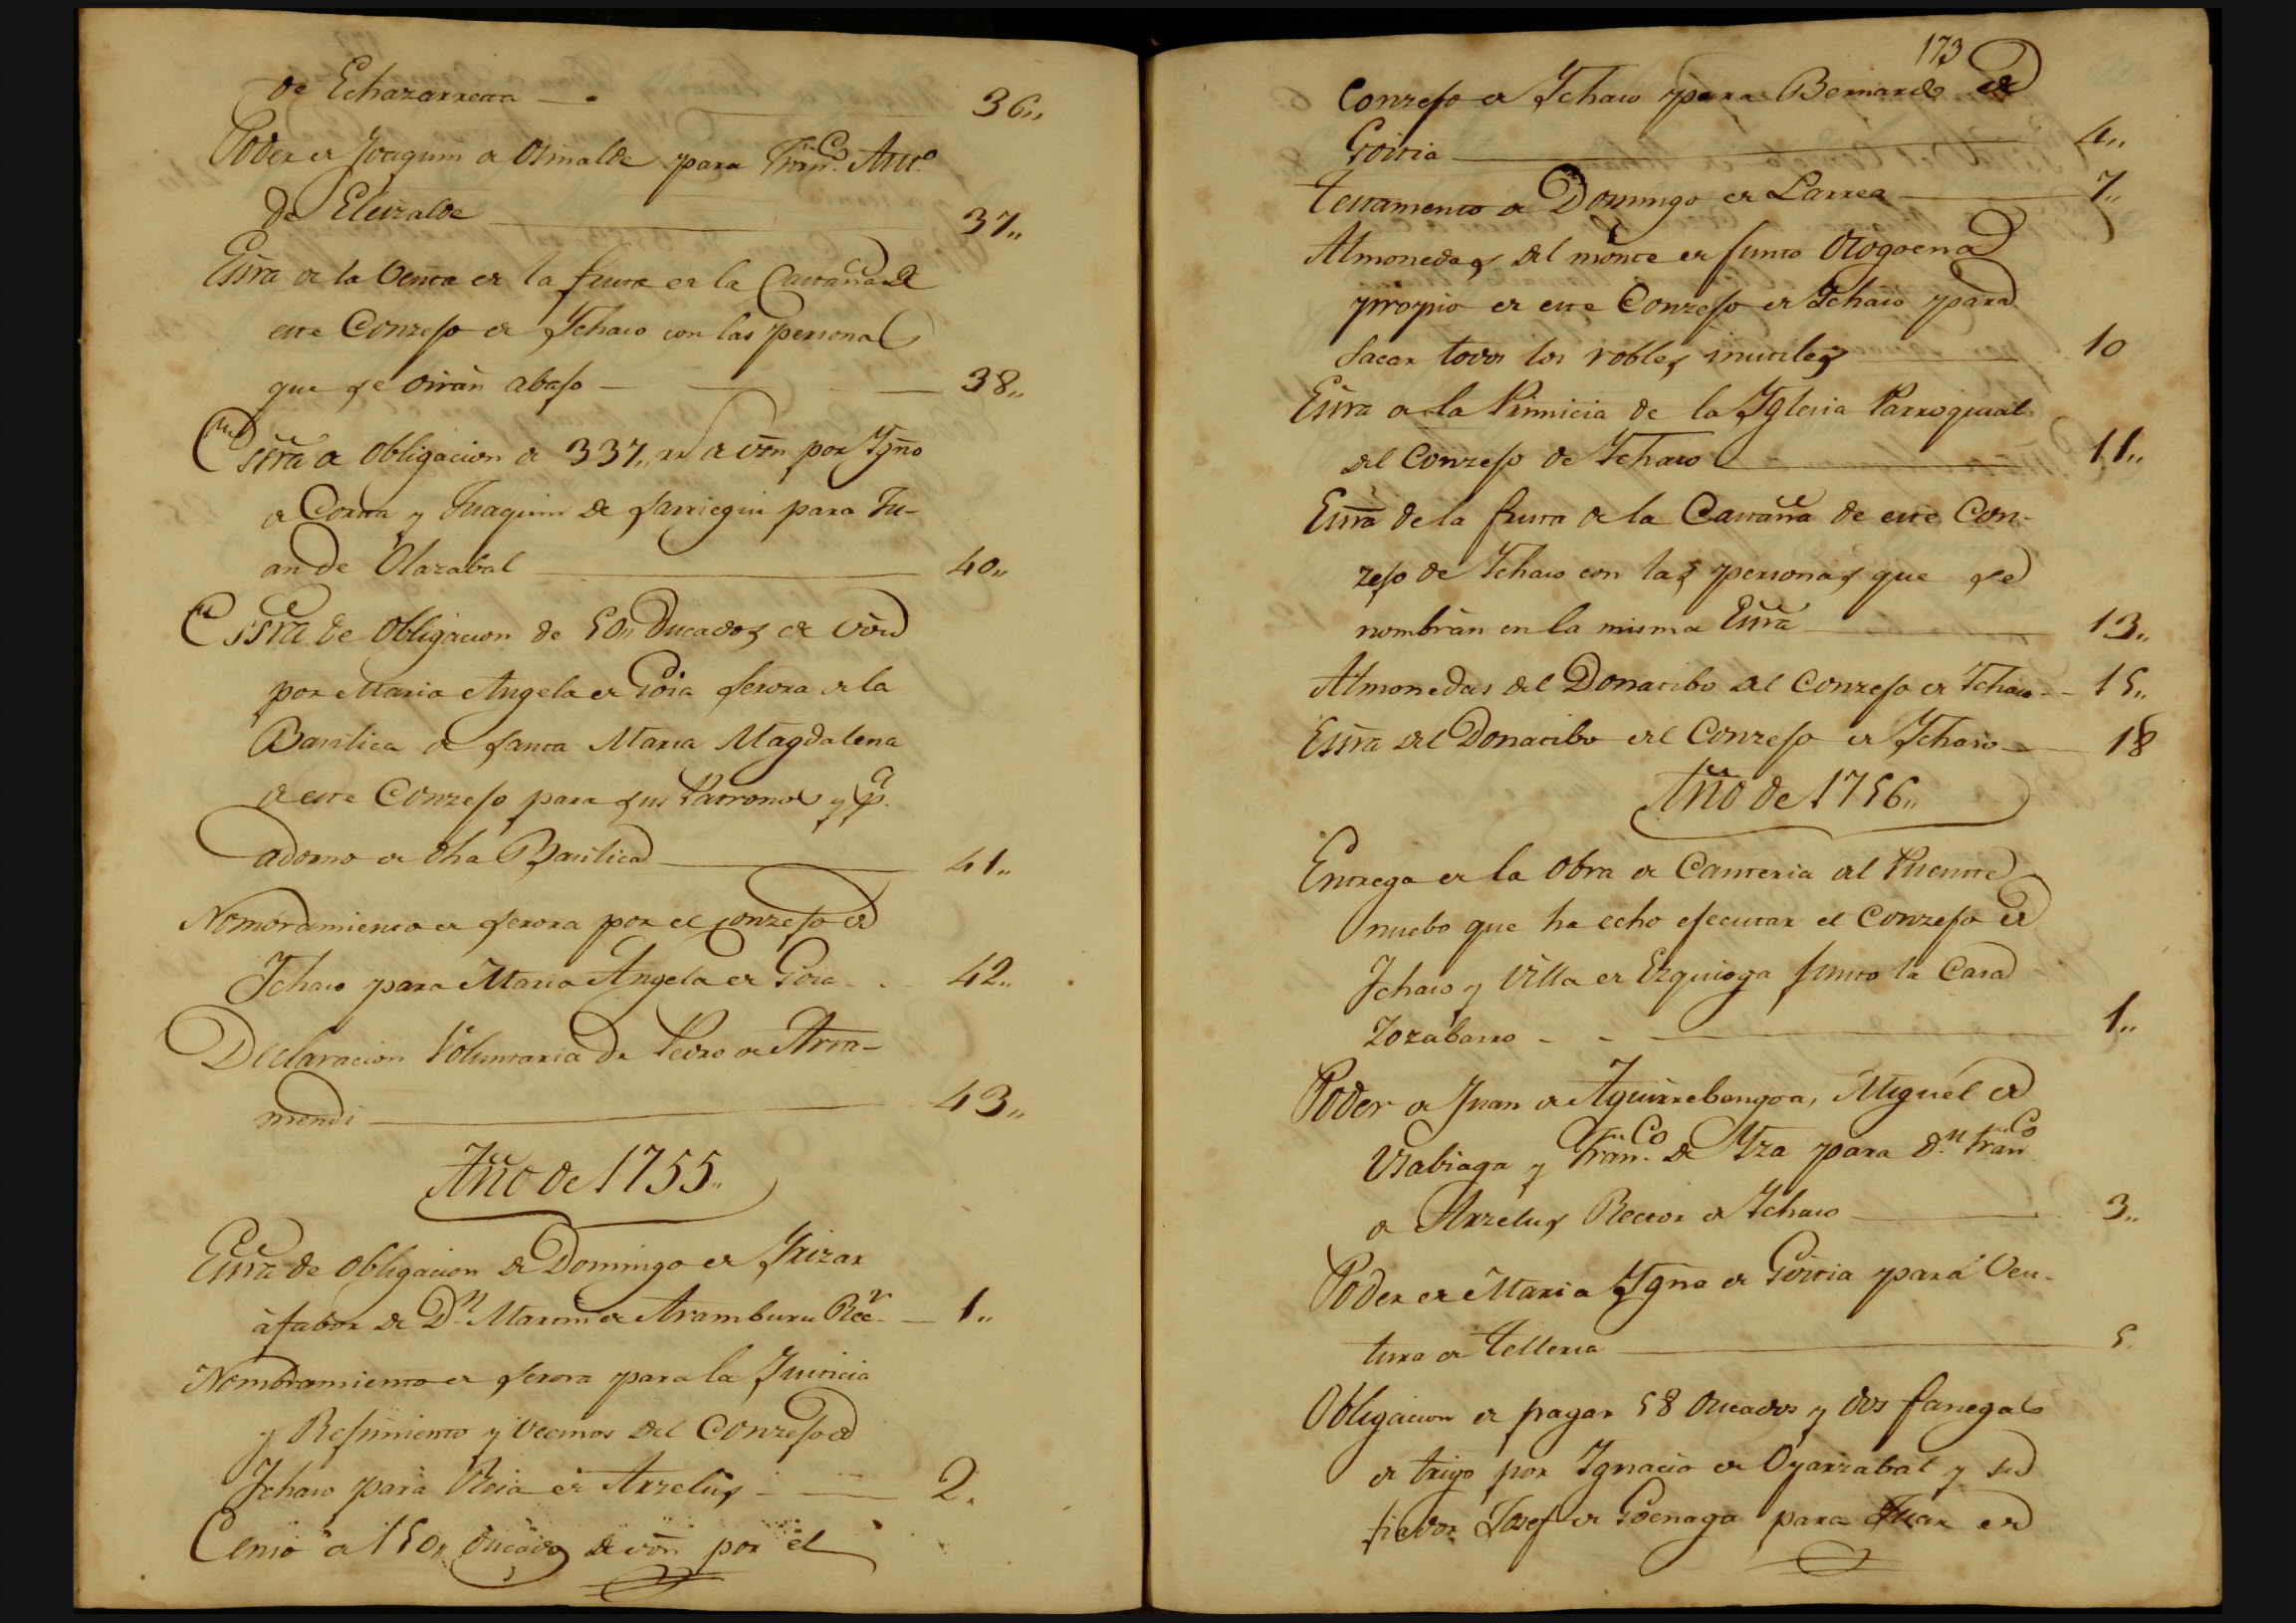 de Echazarreta — 36,,
Poder de Joaquin de Osinalde para Fran.co Ant.o
de Eleizalde — 37,,
Essra de la Venta de la fruta de la Castaña de
este Conzejo de Ichaso con las personas
que se dirán abajo — 38,,
Essra de obligacion de 337,, rs de von por Ygno
de Corta y Juaquin de Jarriegui para Ju-
an de Olazabal — 40,,
Essra de Obligacion de 50,, Ducados de von
por Maria Angela de Goia serora de la
Basilica de santa Maria Magdalena
de este Conzejo para sus Patronos y p.a
adorno de dha Basilica — 41,,
Nombramiento de serora por el conzejo de
Ichaso para Maria Angela de Goia - . - 42,,
Declaracion Voluntaria de Pedro de Arra-
mendi — 43,,
Año de 1755,,
Essra de Obligacion de Domingo de Yrizar
à fabor de D.n Martin de Aramburu Rec.r — 1,,
Nombramiento de serora para la Justicia
y Rejimiento y vecinos del Conzejo de
Ichaso para Ursia de Arzelus — 2.
Censo de 150,, Ducados de von por el
173
Conzejo de Ichaso para Bernardo de
Goitia — 4,,
testamento de Domingo de Larrea — 7,,
Almonedas del monte de junto Otogoena
propio de este Conzejo de Ichaso para
sacar todos los robles inutiles — 10
Essra de la Primicia de la Yglesia Parroquial
del Conzejo de Ichaso — 11,,
Essra de la fruta de la Castaña de este Con-
zejo de Ichaso con las personas que se
nombràn en la misma Essra — 13,,
Almonedas del Donatibo del Conzejo de Ichaso - - 15,,
Essra del Donatibo del Conzejo de Ichaso — 18
Año de 1756,,
Entrega de la Obra de Canteria del Puente
nuebo que ha echo ejecutar el Conzejo de
Ichaso y Villa de Ezquioga junto la Casa
Zozabarro - - — 1,,
Poder de Juan de Aguirrebengoa, Miguel de
Usabiaga y Fran.co de Yza para D.n Fran.co
de Arzelus Rector de Ichaso — 3,,
Poder de Maria Ygna de Goitia para Ven-
tura de Telleria — 5.
Obligacion de pagar 58 ducados y dos fanegas
de trigo por Ignacio de Oyarzabal y su
fiador Josef de Goenaga para Juan de